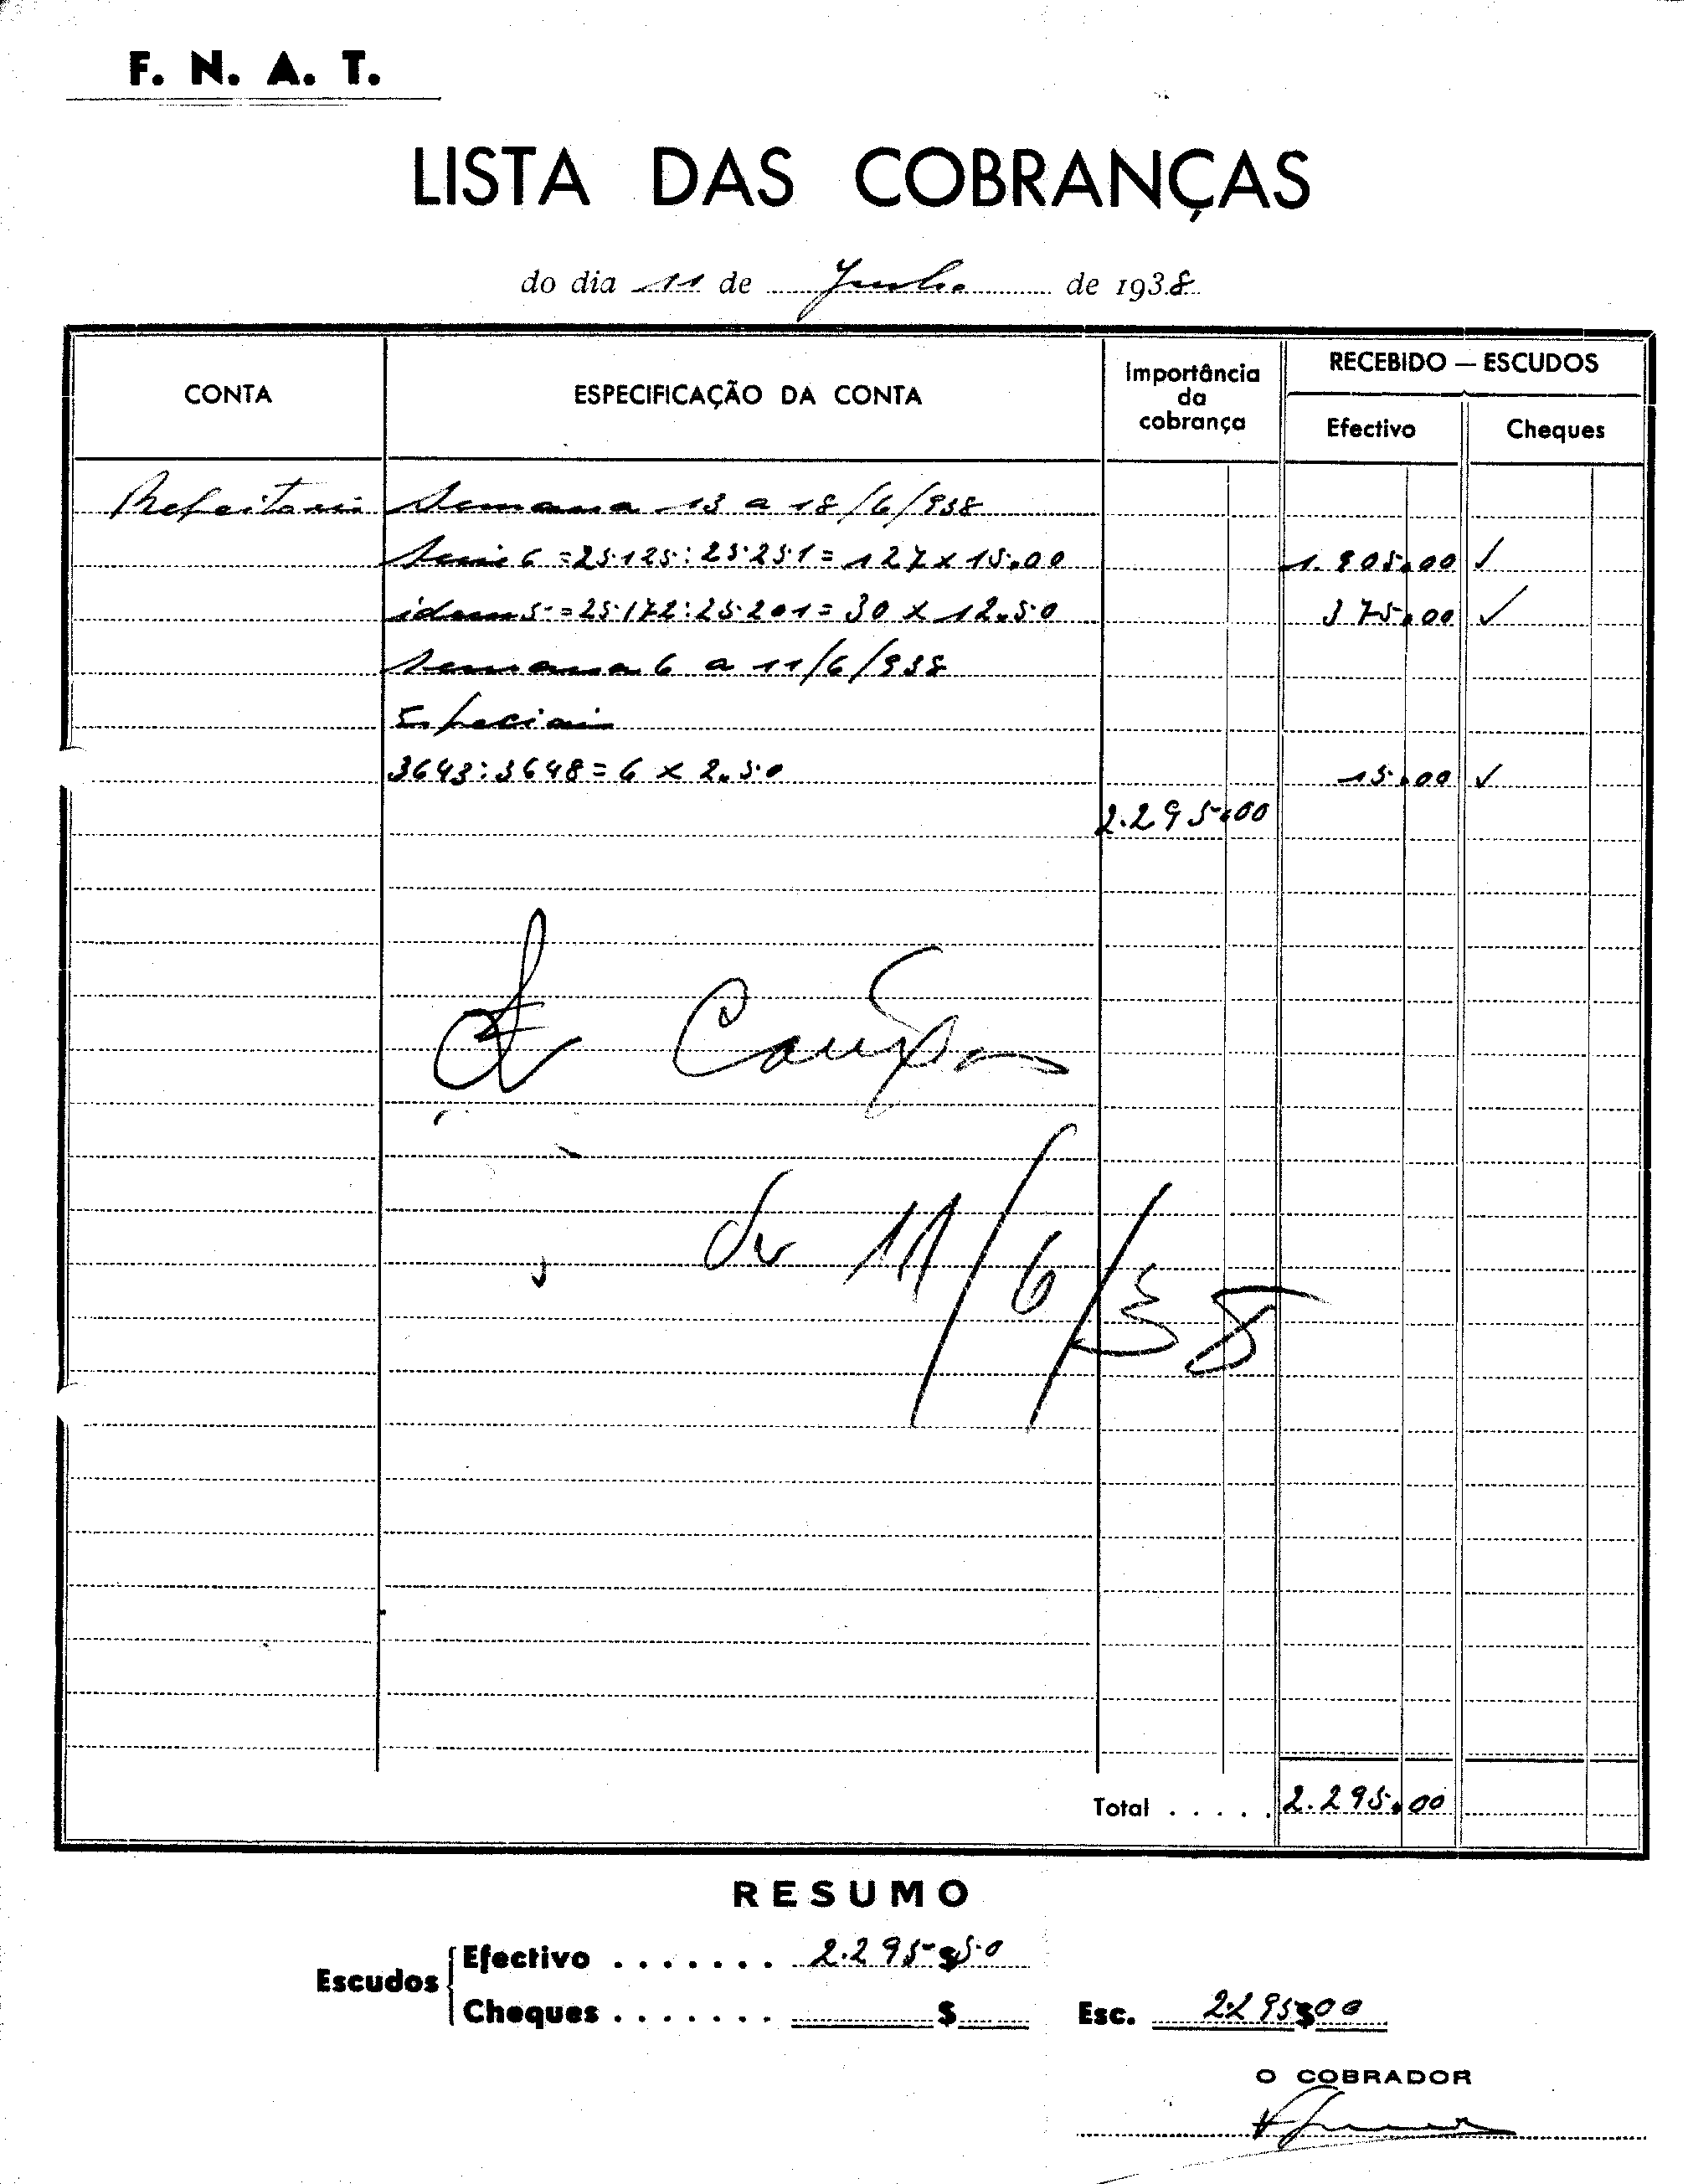 F. N. A. T.
LISTA DAS COBRANÇAS
do dia 11 de Junho de 1938
CONTA ESPECIFICAÇÃO DA CONTA Importância da cobrança RECEBIDO — ESCUDOS
Efectivo Cheques
Refeitorio Semana 13 a 18/6/938
Serie 6 = 25.125 : 25.251 = 127 x 15.00 1.905.00 ✓
idem 5 = 25.172 : 25.201 = 30 x 12.50 375.00 ✓
Semana 6 a 11/6/938
Especiais
3643 : 3648 = 6 x 2.50 15.00 ✓
2.295.00
Campos
de 11/6/38
Total . . . . . 2.295.00
RESUMO
Escudos
Efectivo . . . . . . . 2.295$50
Cheques . . . . . . . $
Esc. 2.295$00
O COBRADOR